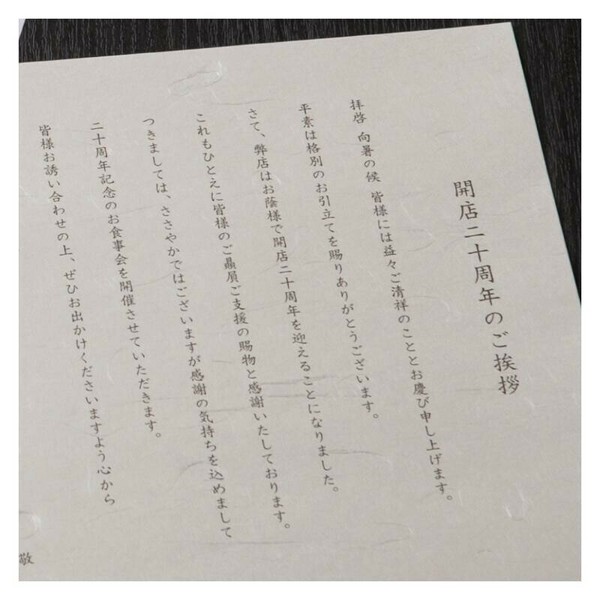 開店二十周年のご挨拶
拝啓 向暑の候 皆様には益々ご清祥のこととお慶び申し上げます。
平素は格別のお引立てを賜りありがとうございます。
さて、弊店はお蔭様で開店二十周年を迎えることになりました。
これもひとえに皆様のご贔屓ご支援の賜物と感謝いたしております。
つきましては、ささやかではございますが感謝の気持ちを込めまして
二十周年記念のお食事会を開催させていただきます。
皆様お誘い合わせの上、ぜひお出かけくださいますよう心から
敬